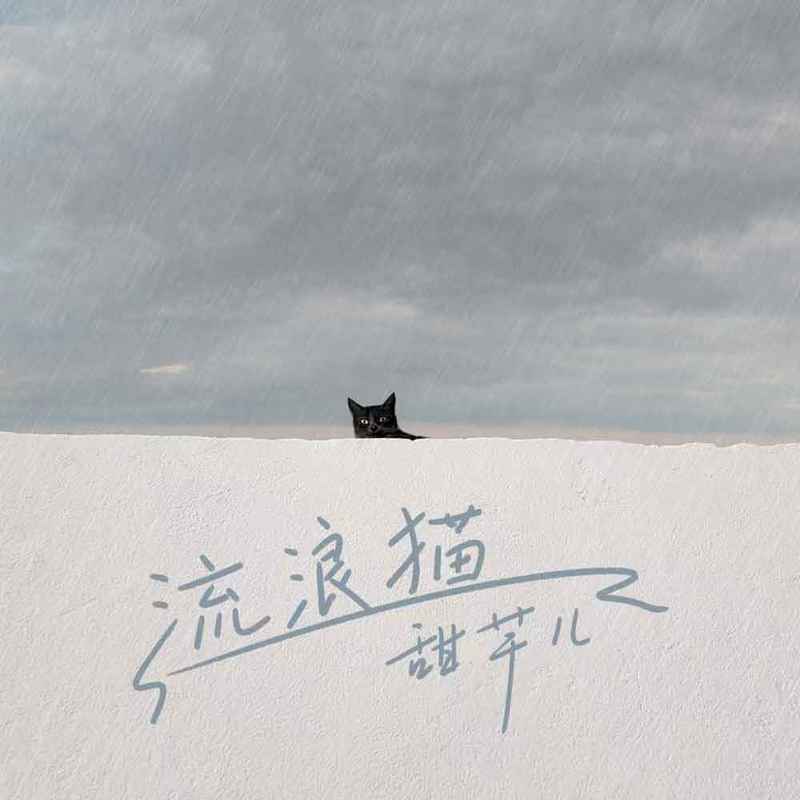 流浪猫
甜芋儿